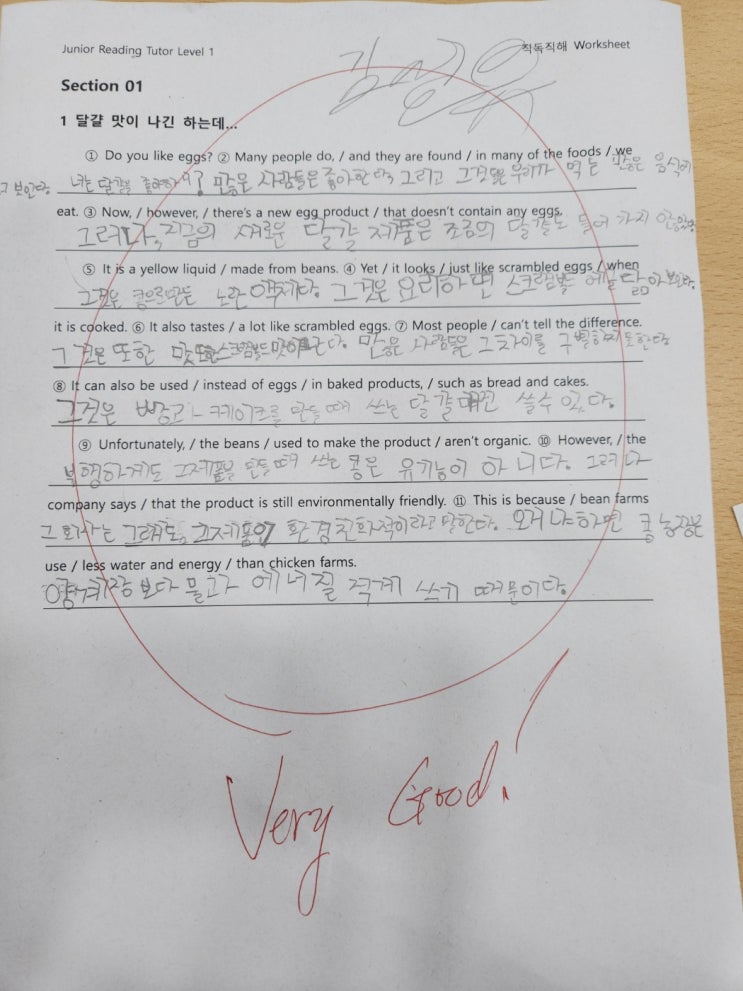 Junior Reading Tutor Level 1
직독직해 Worksheet
Section 01
1 달걀 맛이 나긴 하는데...
① Do you like eggs? ② Many people do, / and they are found / in many of the foods / we
너는 달걀을 좋아하니? 많은 사람들은 좋아한다, 그리고 그것들은 우리가 먹는 많은 음식에
보인다.
eat. ③ Now, / however, / there's a new egg product / that doesn't contain any eggs.
그러나, 지금의 새로운 달걀 제품은 조금의 달걀도 들어 가지 안
⑤ It is a yellow liquid / made from beans. ④ Yet / it looks / just like scrambled eggs / when
그것은 콩으로만든 노란 액체다. 그것은 요리하면 스크램블드 에그 닮아 보인다.
it is cooked. ⑥ It also tastes / a lot like scrambled eggs. ⑦ Most people / can't tell the difference.
그것은 또한 맛 또한 스크램블드 많은 사람들은 그차이를 구별하지 못한다
⑧ It can also be used / instead of eggs / in baked products, / such as bread and cakes.
그것은 빵과 케이크를 만들때 쓰는 달걀 대신 쓸수 있다.
⑨ Unfortunately, / the beans / used to make the product / aren't organic. ⑩ However, / the
불행하게도 그제품을 만들때 쓰는 콩은 유기농이 아니다. 그러나
company says / that the product is still environmentally friendly. ⑪ This is because / bean farms
그 회사는 그래도, 그제품이 환경친화적이라고 말한다. 왜냐하면 콩 농장은
use / less water and energy / than chicken farms.
양계장 보다 물과 에너질 적게 쓰기 때문이다.
Very Good!